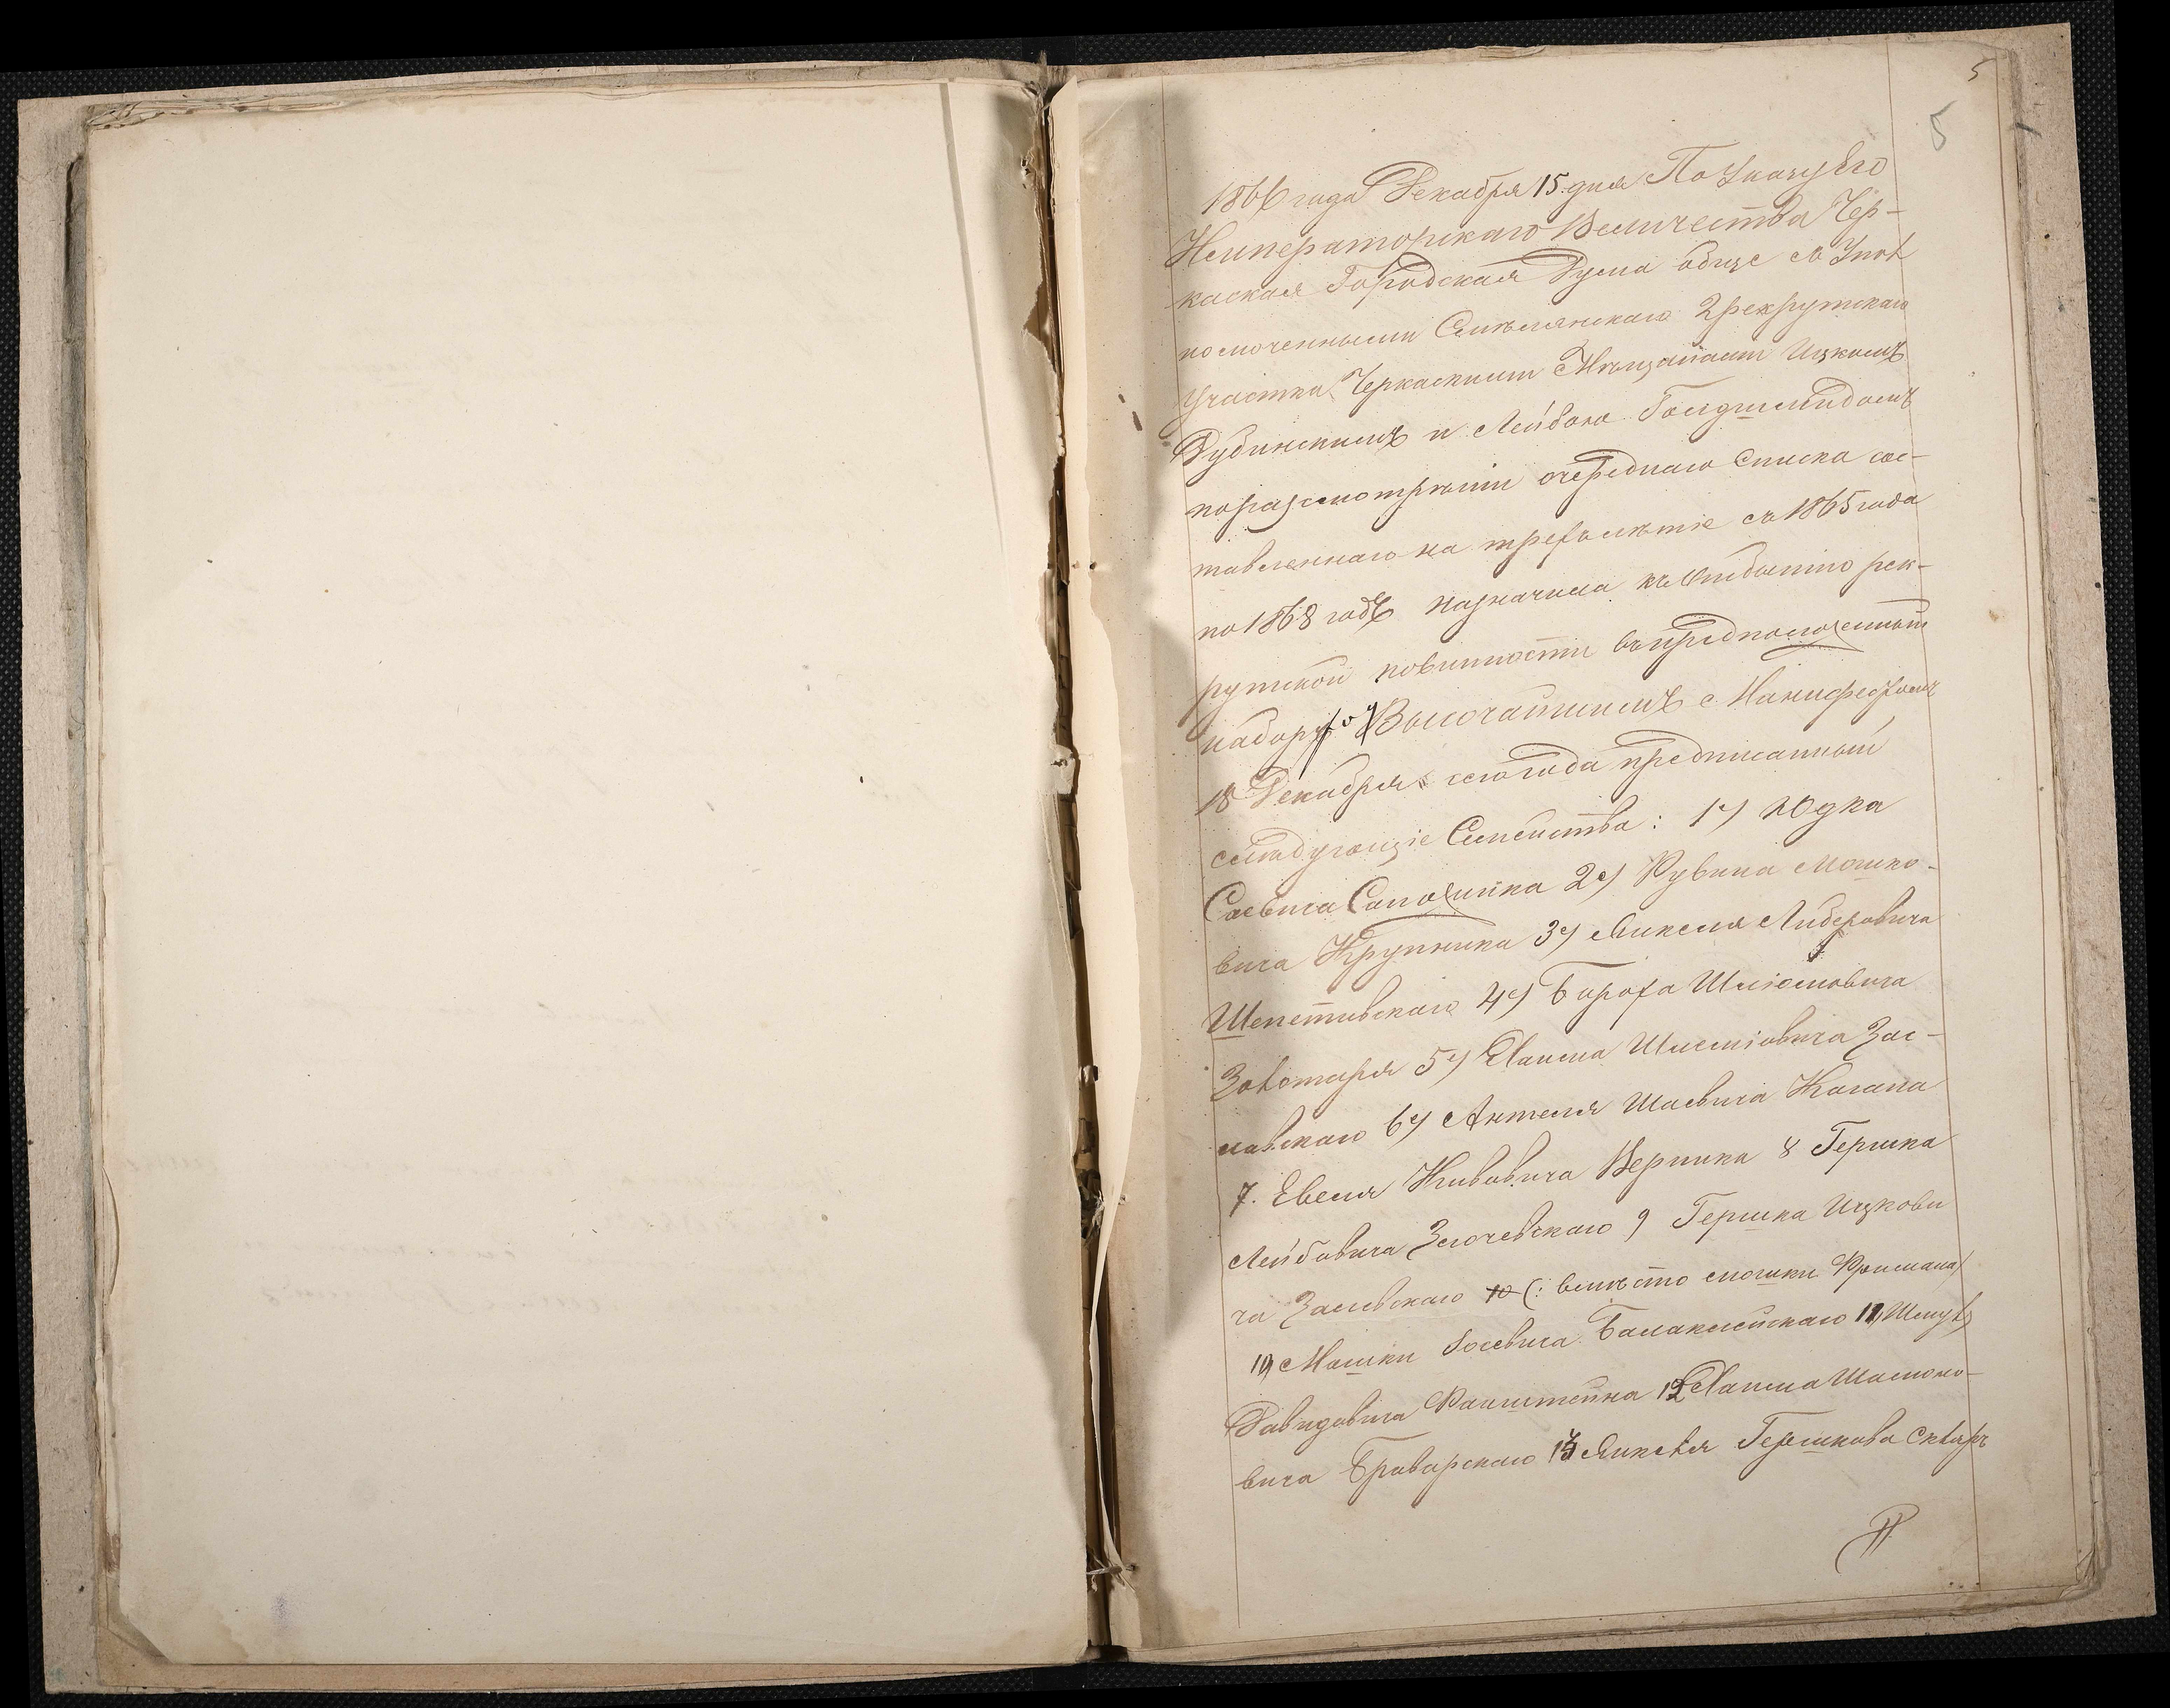 5
5
1866 года Декабря 15 дня По Указу Его
Императорскаго Величества Чер-
каская Городская Дума обще съ Упол
номоченными Смелянскаго 2 рекрутскаго
участка Черкаскими Мѣщанами Ицкомъ
Дубинскимъ и Лейбою Гольдшмидомъ
по разсмотрѣнии очереднаго списка сос-
тавленнаго на трехълѣтіе съ 1865 года
по 1868 годъ назначила къ отбытію рек-
рутской повинности въ предположенный
наборъ Высочайшимъ Манифестомъ
18 Декабря сего года предписанный
слѣдующіе Семейства: 1) Юдка
Сосвича Саполійка 2) Рувина Мошко-
вича Крупника 3) Янкеля Либеровича
Шепетивскаго 4) Бороха Шліомовича
Золотаря 5) Хаима Шлеміовича Зас-
лавскаго 6) Антеля Шаевича Когана
7. Евеля Кивовича Верника 8 Гершка
Лейбовича Злочевскаго 9 Гершка Ицкови
ча Заслвскаго 10 (: вмѣсто мошки Фримана)
10) Мошки Іосевича Балаклейскаго 11) Шмуль
Давидовича Файнштейна 12 Хаима Шаломо-
вича Броварскаго 13 Янкеля Гершкова Скляръ